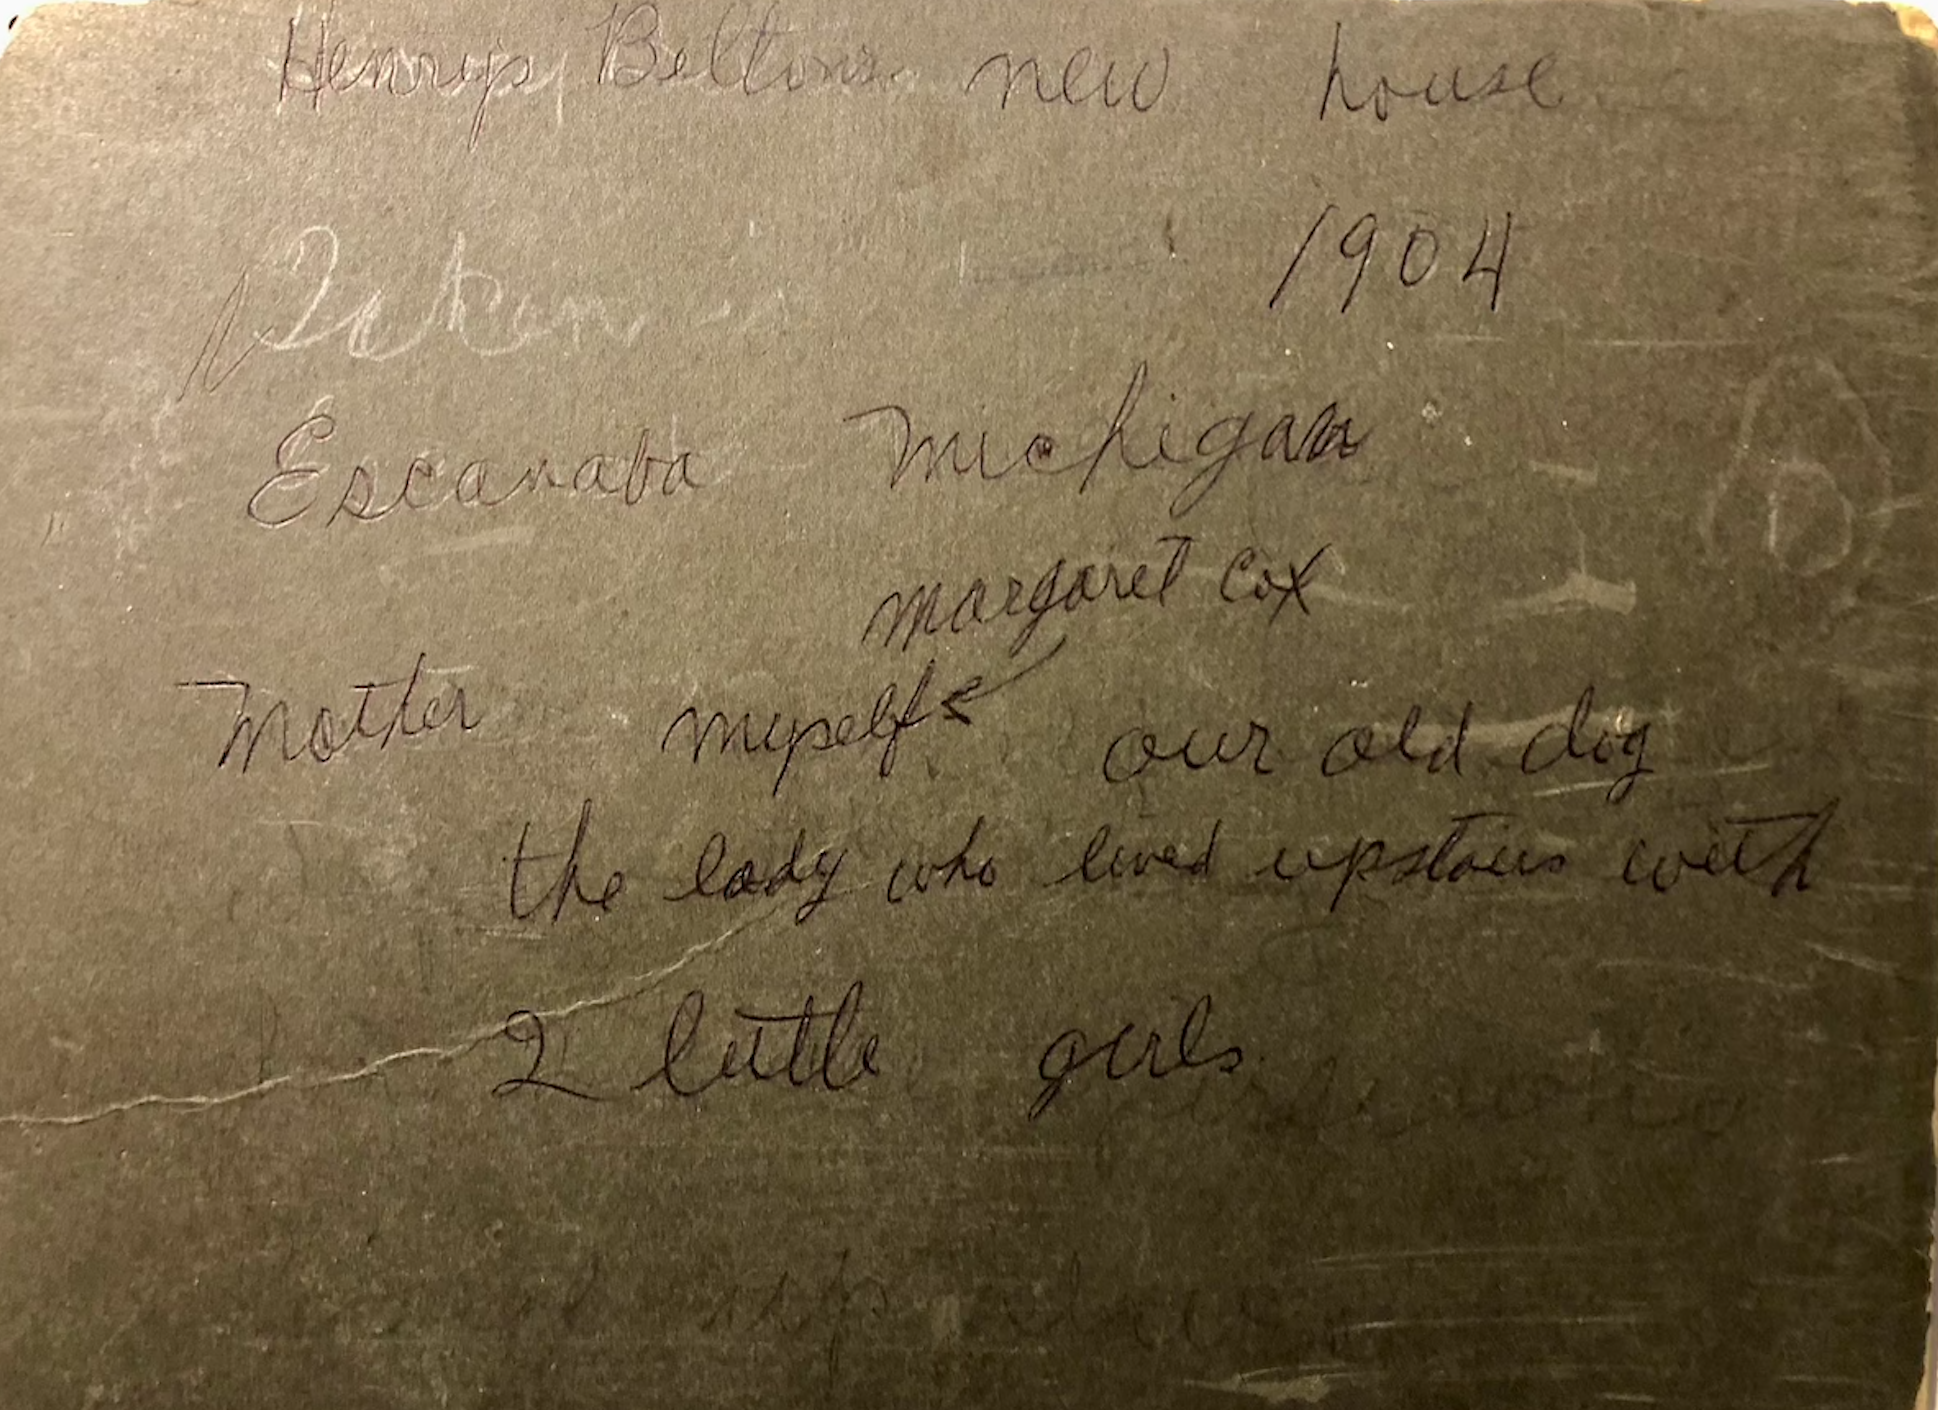 Henrys Beltons new house
1904
Escanaba Michigan
Margaret Cox
Mother myself our old dog
the lady who lived upstairs with
2 little girls